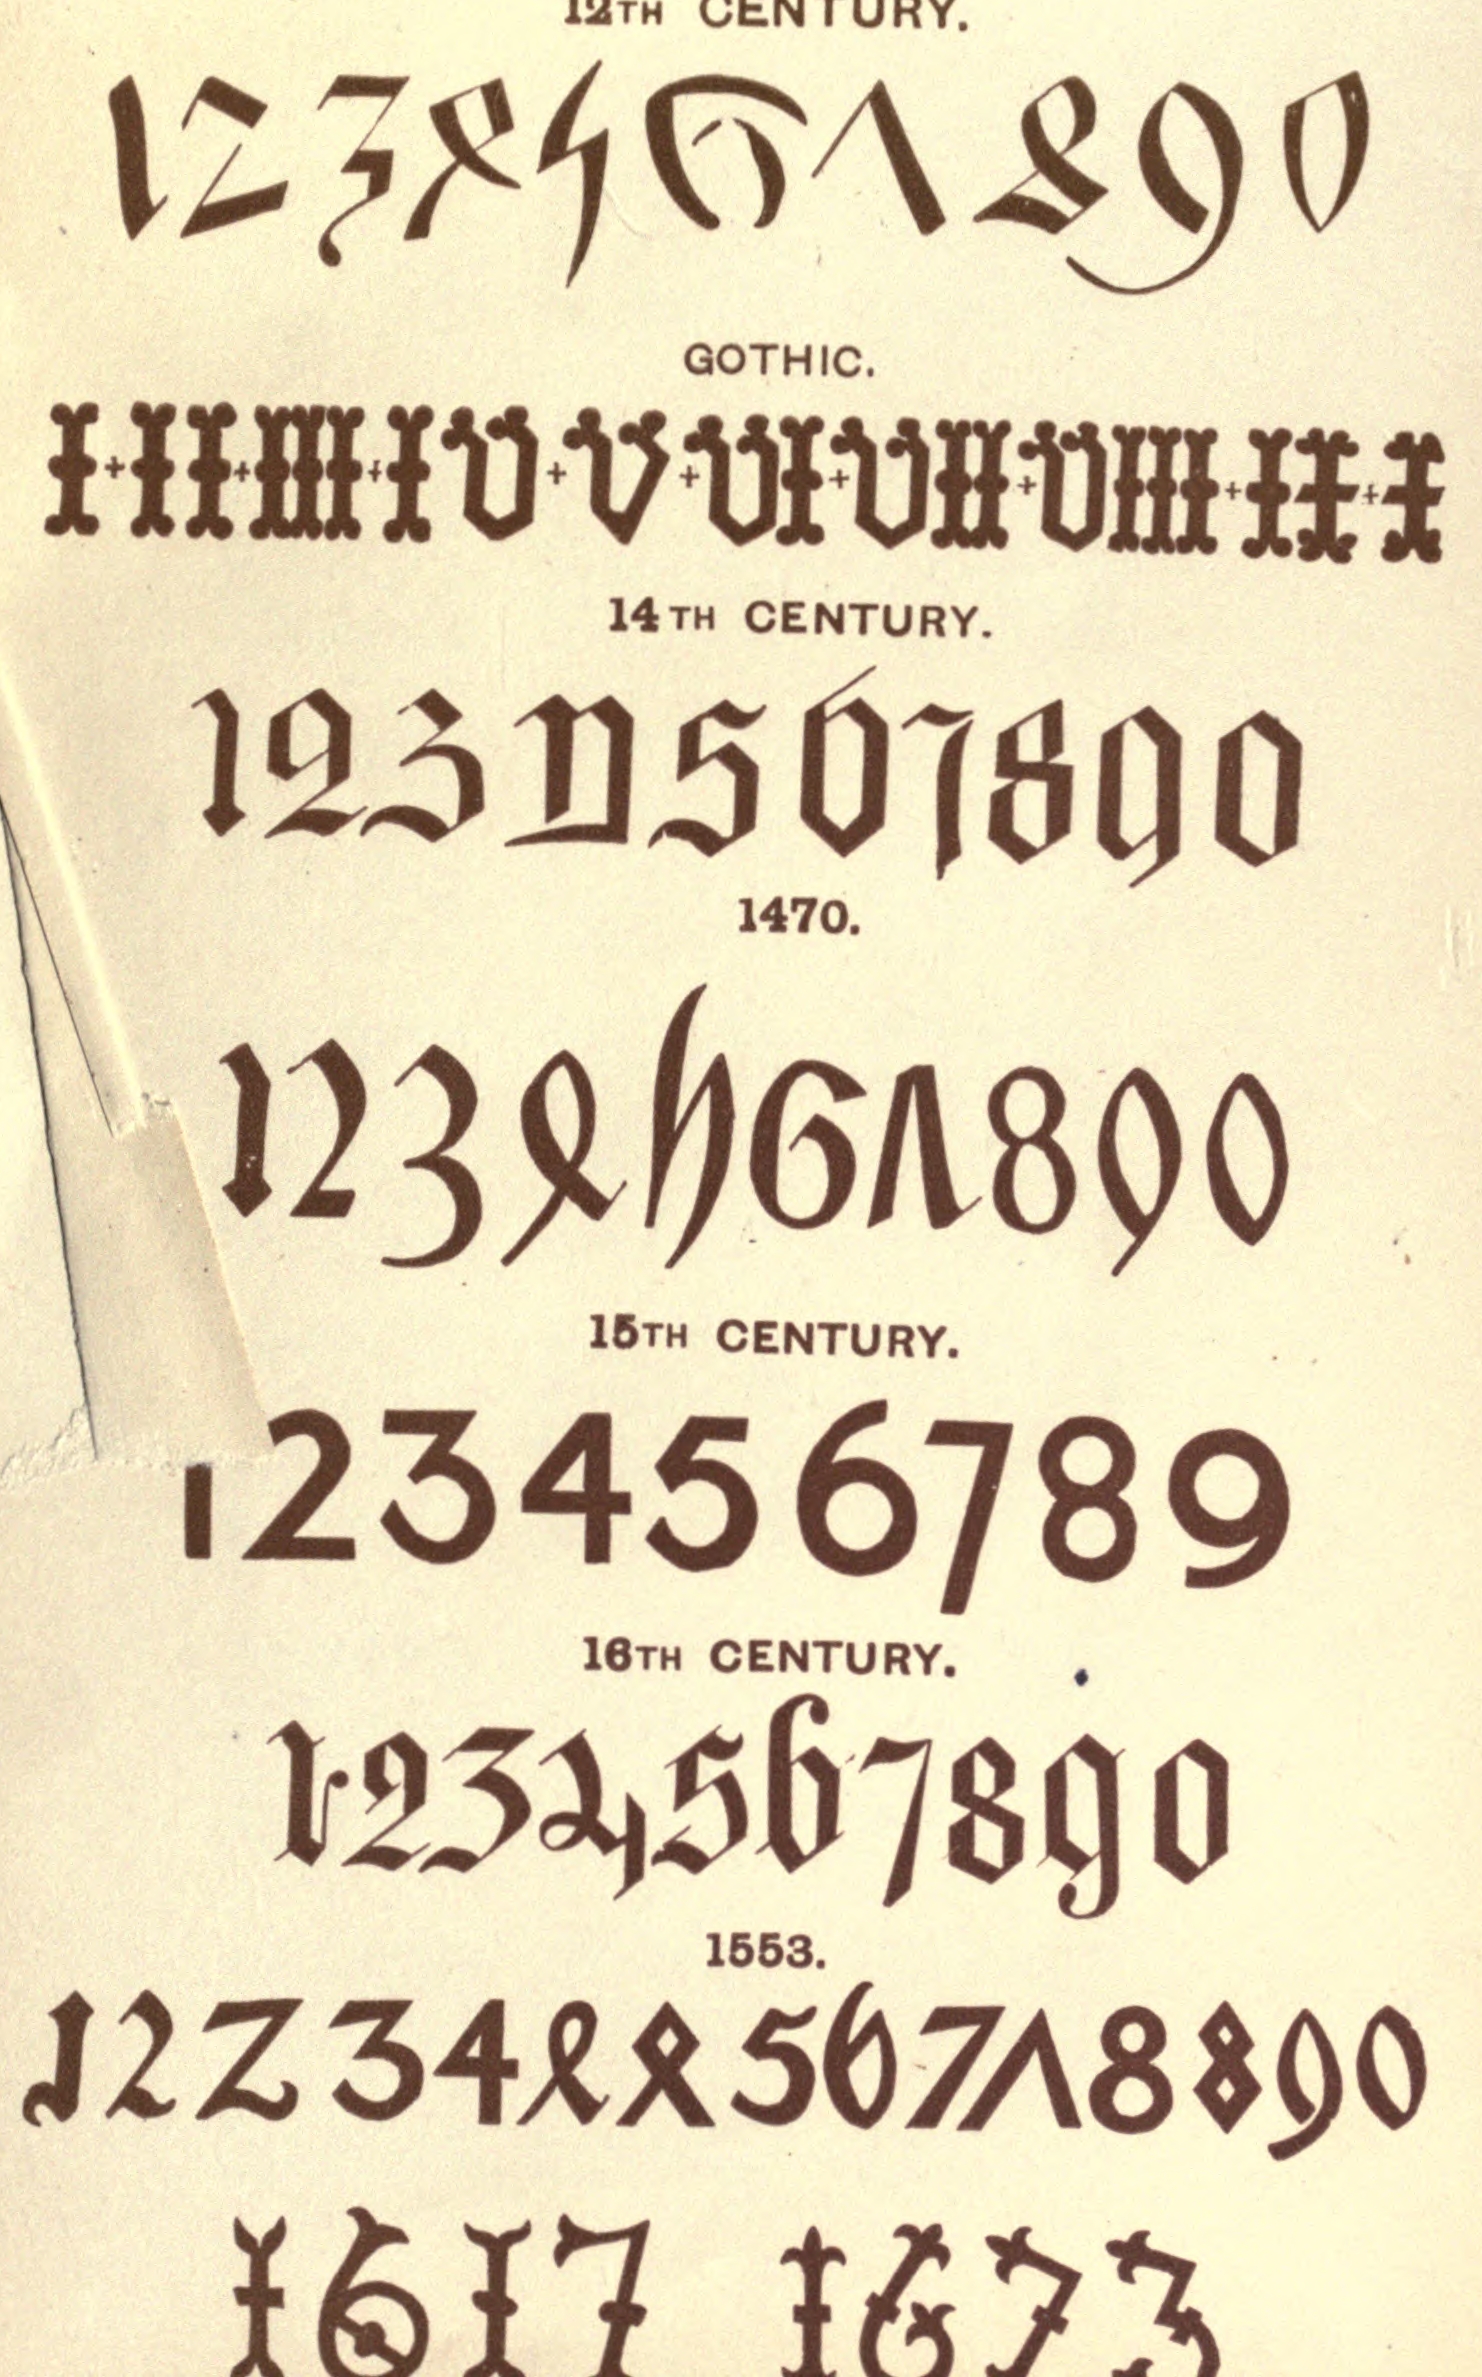 12TH CENTURY.
1234567890
GOTHIC.
I+II+III+IV+V+VI+VII+VIII+IX+X
14TH CENTURY.
1234567890
1470.
1234567890
15TH CENTURY.
123456789
16TH CENTURY.
1234567890
1553.
122344456778890
1617 1673